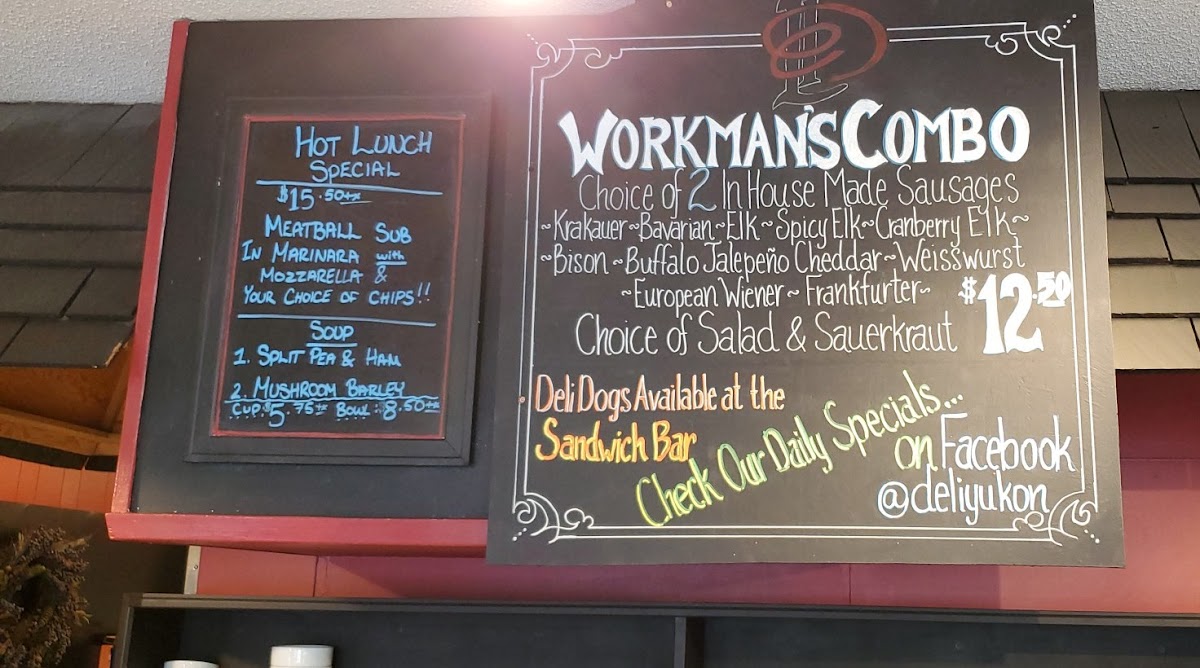 HOT LUNCH
SPECIAL
$15.50+tx
MEATBALL SUB
IN MARINARA with
MOZZARELLA &
YOUR CHOICE OF CHIPS!!
SOUP
1. SPLIT PEA & HAM
2. MUSHROOM BARLEY
CUP:$5.75+tx BOWL:8.50+tx
WORKMAN'S COMBO
Choice of 2 In House Made Sausages
~Krakauer~Bavarian~Elk~Spicy Elk~Cranberry Elk~
~Bison~Buffalo Jalepeño Cheddar~Weisswurst
~European Wiener~Frankfurter~
$12.50
Choice of Salad & Sauerkraut
Deli Dogs Available at the
Sandwich Bar
Check Our Daily Specials...
on Facebook
@deliyukon